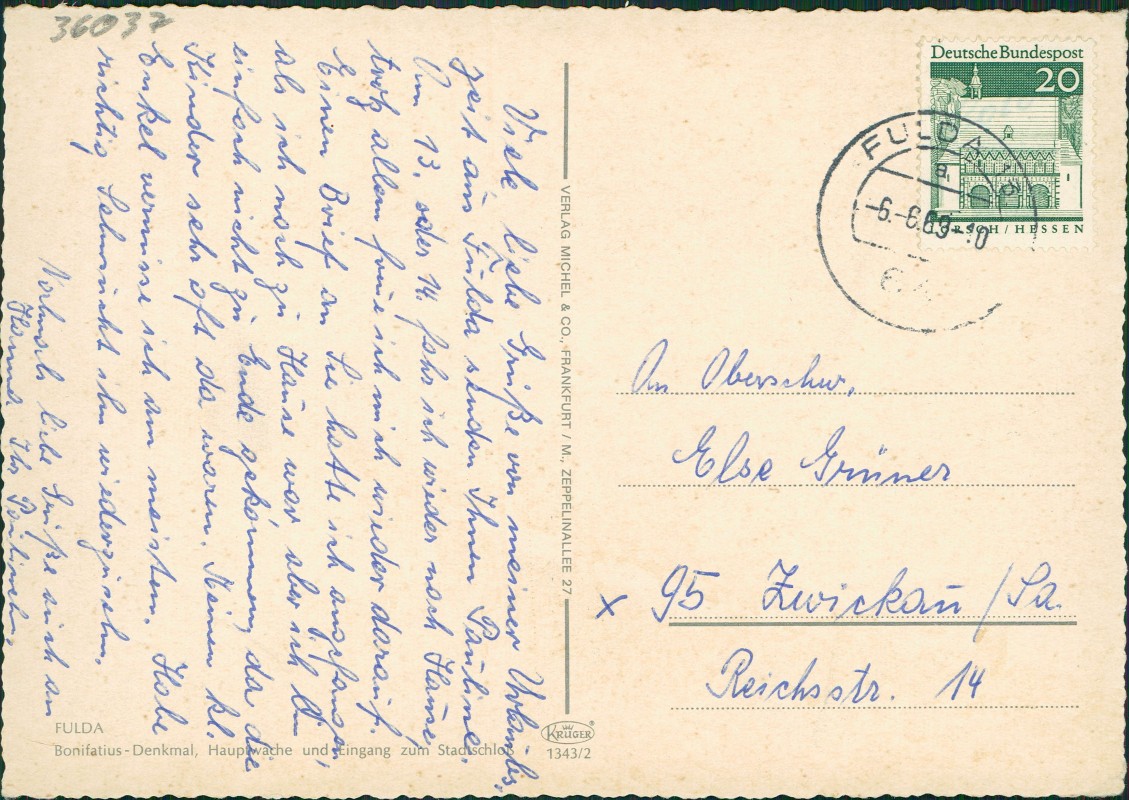 36037
Viele liebe Grüße von meiner Urlaubs,
zeit aus Fulda senden Ihnen Pauline.
Am 13. oder 14. fahr ich wieder nach Hause,
trotz allem freue ich mich wieder darauf.
Einen Brief an Sie hatte ich angefangen,
als ich noch zu Hause war aber ich bin
einfach nicht zu Ende gekommen, da die
Kinder sehr oft da waren. Meinen kl.
Enkel vermisse ich am meisten. Habe
richtig Sehnsucht ihn wiederzusehn.
Nochmals liebe Grüße auch an
Hanna Ihr Paulinchen.
FULDA
Bonifatius-Denkmal, Hauptwache und Eingang zum Stadtschloß
VERLAG MICHEL & CO., FRANKFURT / M., ZEPPELINALLEE 27
KRÜGER
1343/2
Deutsche Bundespost
20
LORSCH / HESSEN
FULDA
-6.-6.69-10
An Oberschw.
Else Grüner
x 95 Zwickau / Sa.
Reichsstr. 14